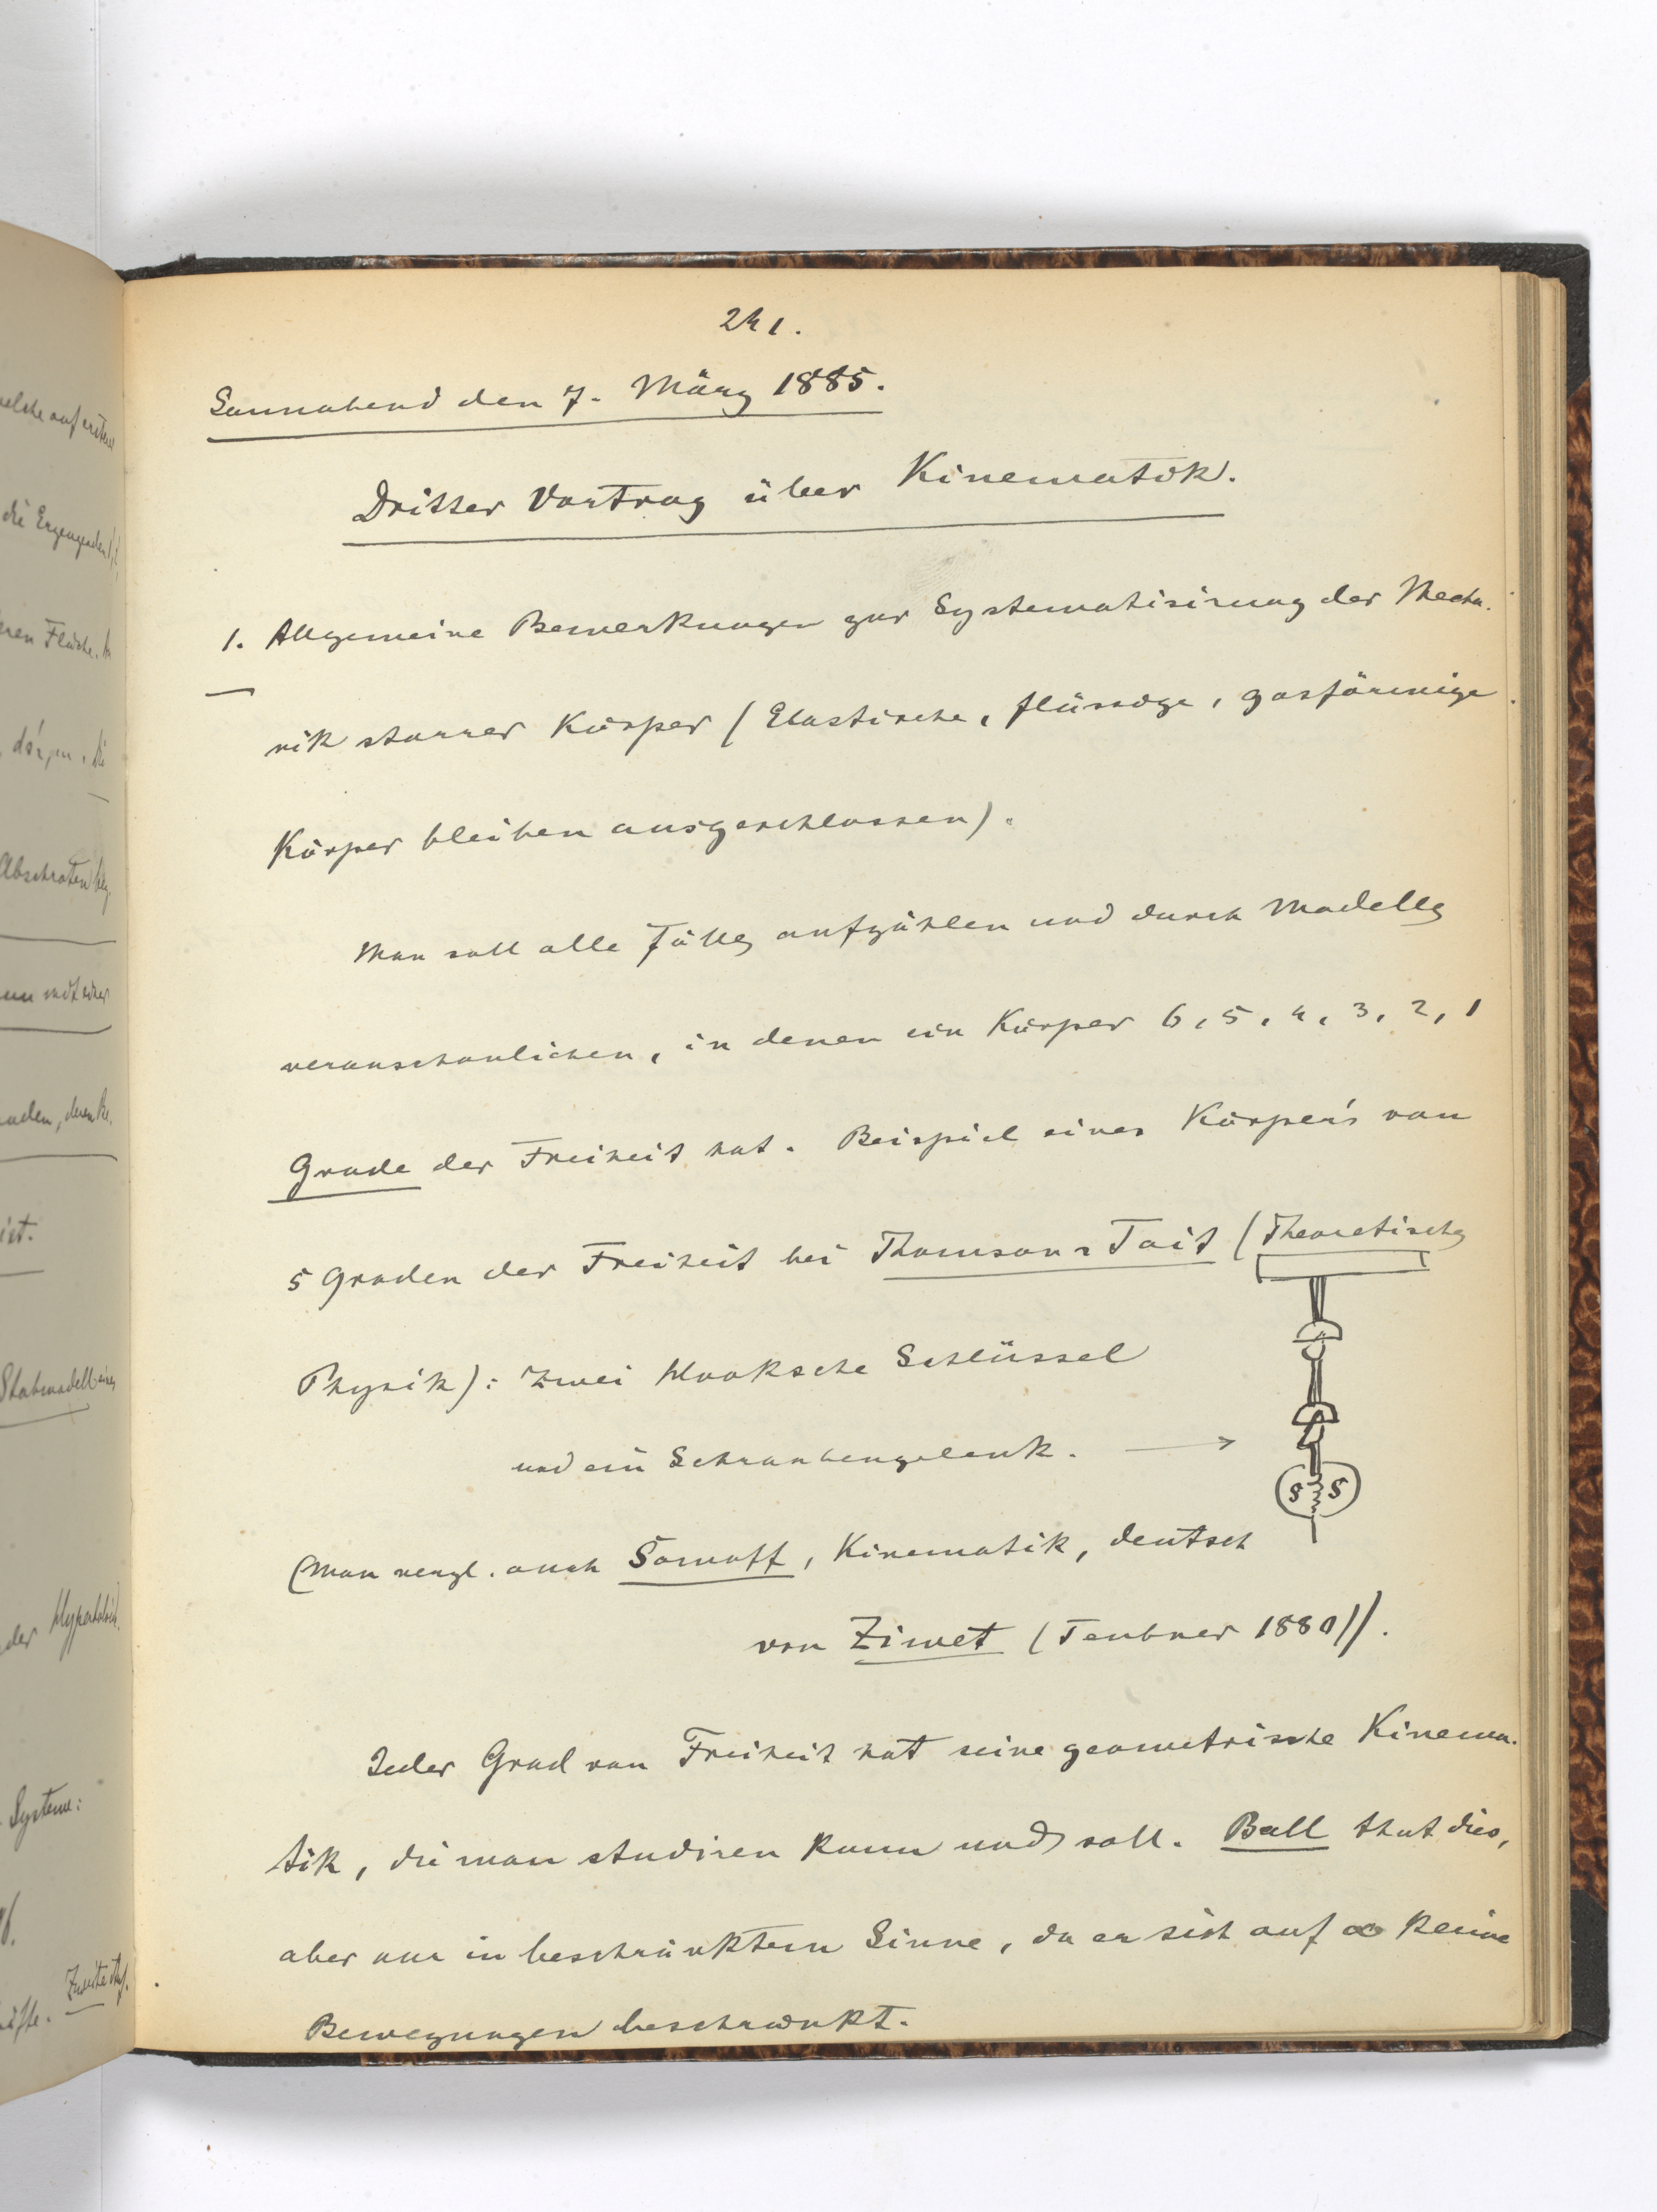 241.
Sonnabend den 7. März 1885.
Dritter Vortrag über Kinematik.
1. Allgemeine Bemerkungen zur Systematisirung der Mecha-
nik starrer Körper (Elastische, flüssige, gasförmige
Körper bleiben ausgeschlossen).
Man soll alle Fälle aufzählen und durch Modelle
veranschaulichen, in denen ein Körper 6, 5, 4, 3, 2, 1
Grade der Freiheit hat. Beispiel eines Körper's von
5 Graden der Freiheit bei Thomson-Tait (Theoretische
Physik): Zwei Hooksche Schlüssel
und ein Schraubengelenk. →
S S
(Man vergl. auch Somoff, Kinematik, deutsch
von Ziwet (Teubner 1880)).
Jeder Grad von Freiheit hat seine geometrische Kinema-
tik, die man studiren kann und soll. Ball that dies,
aber nur in beschränktem Sinne, da er sich auf ∞ kleine
Bewegungen beschränkt.
welche auf
die Erzeugenden
Fläche.
Abschroten
einer
ist.
Stabmodell eines
der Hyperboloid
Systeme: